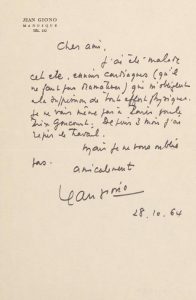 JEAN GIONO
MANOSQUE
TÉL. 132
Cher ami,
J'ai été malade
cet été, ennuis cardiaques (qu'il
ne faut pas dramatiser) qui m'obligent
à la suppression de tout effort physique.
Je ne vais même pas à Paris pour le
Prix Goncourt. Depuis 3 mois j'ai
repris le travail.
Mais je ne vous oublie
pas.
amicalement
Jean Giono
28.10.64